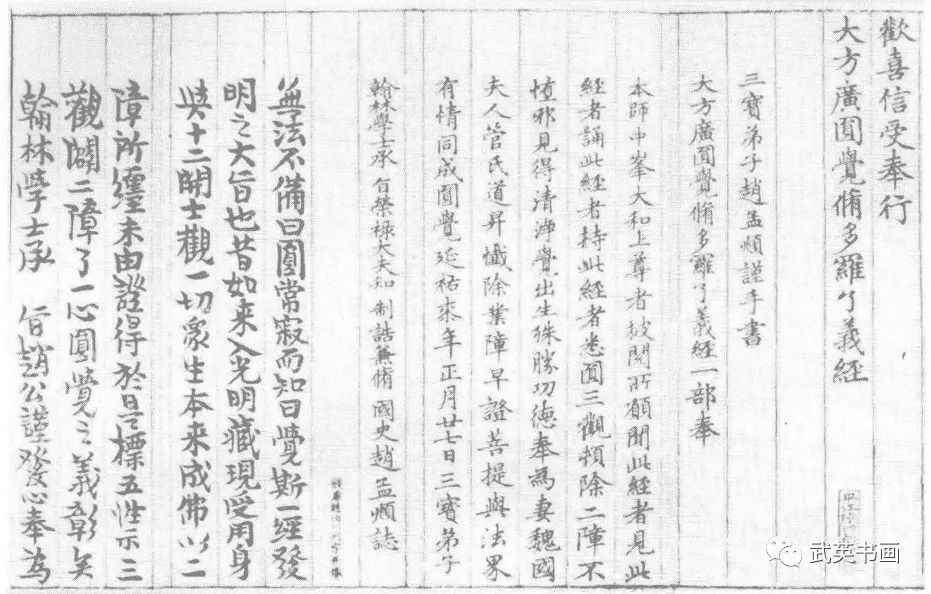 歡喜信受奉行
大方廣圓覺脩多羅了義經
三寶弟子趙孟頫謹手書
大方廣圓覺脩多羅了義經一部奉
本師中峯大和上尊者披閱所願聞此經者見此
經者誦此經者持此經者悉圓三觀頓除二障不
墮邪見得清淨覺出生殊勝功德奉為妻魏國
夫人管氏道昇懺除業障早證菩提與法界
有情同成圓覺延祐柒年正月廿七日三寶弟子
翰林學士承旨榮祿大夫知制誥兼脩國史趙孟頫誌
無法不備曰圓常寂而知曰覺斯一經發
明之大旨也昔如来入光明藏現受用身
與十二開士觀一切眾生本来成佛以二
障所纏未由證得於是標五性示三
觀闢二障了一心圓覺之義彰矣
翰林學士承 旨趙公謹發心奉為
武英书画